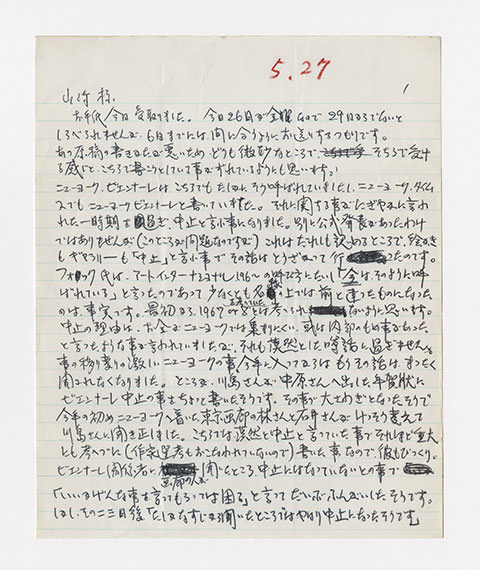 5.27
1
山 様.
お手紙今日受取りました。今日26日が金曜なので29日までないと
しらべられませんが、6日までには、間に合うようにお送りするつもりです。
あの原稿の書きかたが悪いため、どうも微妙なところで、そちらで受け
る感じと、こちらで書こうとしていて事がずれているようにも思います。
ニューヨーク、ビエンナーレはこちらでもたしかにそう呼ばれていましたし、ニューヨーク、タイム
スでもニューヨークビエンナーレと書いていました。それに関する事がにぎやかに言わ
れた一時期を過ぎ、中止と言う事になりました。別に公式発表があったわけ
ではありませんが(このところが問題なのですが)これはだれもも認めるところで、絵かき
もギャラリーも「中止」と言う事でその話はとぎだえて行ったのです。
フォック氏は、アートインターナショナル196~の呼び方たいし「今は、そのように呼
ばれている」と言ったのであって少なくとも名 上では前と違ったものになった
のは、事実です。最初から1967 とは考えられないように思います。
中止の理由は、お金がニューヨークでは集りにくい、或は内部のもめ事がもった
と言ったような事が言われていましたが、それも漠然とした噂話に過ぎません。
事の移り変りの激しいニューヨークの事、今年に入ってからはもうその話は、まったく
聞かれなくなりました。ところが、川島さんが中原さんへ出した年賀状に
ビエンナーレ中止の事をちょっと書いたそうです。その事が大さわぎとなったそうで
今年の初めニューヨークへ着いた東京画廊の林さんと石井さんが 変えて
川島さんに聞き正しました。こちらでは漠然と中止と言っていた事でそれほど重大
にも考えないで(作家選考もおこなわれていないので)書いた事なので、彼もびっくり。
ビエンナーレ関係者に 聞いたところ中止にはなっていないとの事で
画廊の人が
「いいかげんな事を言ってもらっては困る」と言ってだいぶふんがいしたそうです。
しかし、その二三日後「たしかなすじから聞いたところではやはり中止になったそうです」